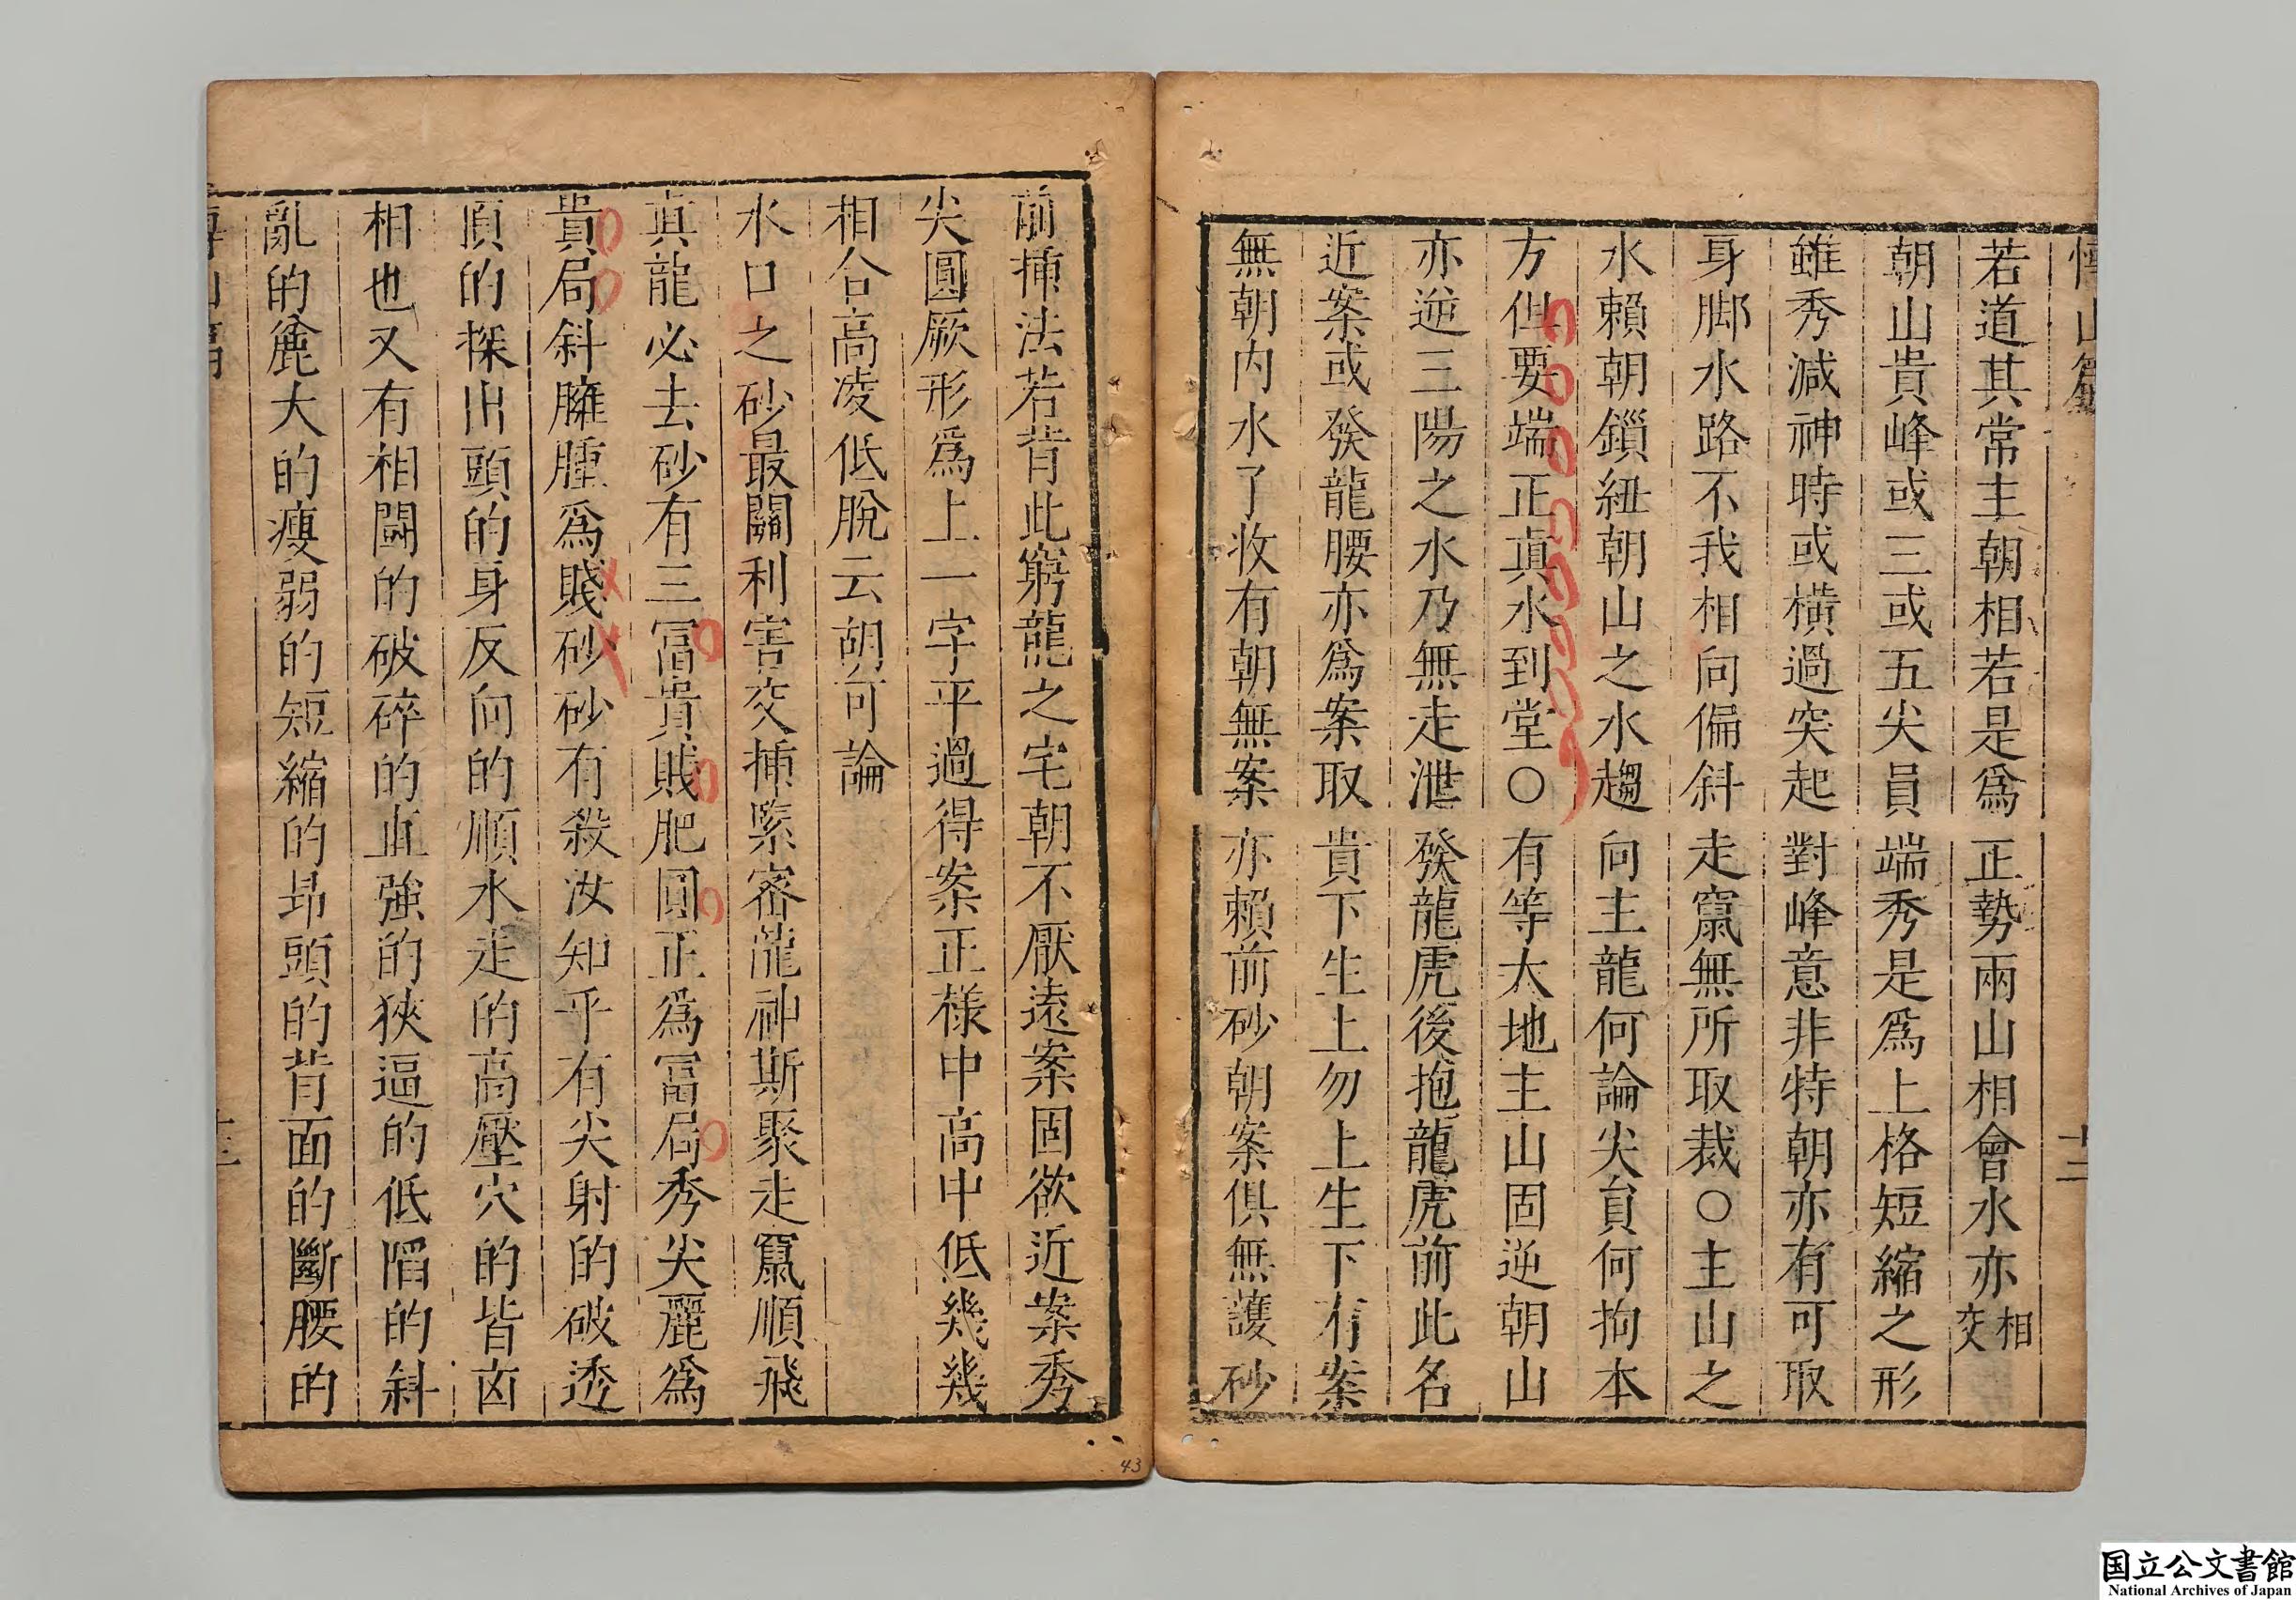 博山篇 十二
若道其常主朝相若是爲正勢兩山相會水亦相交
朝山貴峰或三或五尖員端秀是爲上格短縮之形
雖秀減神時或橫過突起對峰意非特朝亦有可取
身脚水路不我相向偏斜走竄無所取裁○主山之
水賴朝鎖紐朝山之水趨向主龍何論尖員何拘本
方但要端正真水到堂○有等大地主山固逆朝山
亦逆三陽之水乃無走泄發龍虎後抱龍虎前此名
近案或發龍腰亦爲案取貴下生上勿上生下有案
無朝内水了收有朝無案亦賴前砂朝案俱無護砂
前揷法若背此窮龍之宅朝不厭遠案固欲近案秀
尖圓厥形爲上一字平過得案正樣中高中低幾幾
相合高凌低脫云胡可論
水口之砂最關利害交揷緊密龍神斯聚走竄順飛
真龍必去砂有三冨貴賎肥圓正爲冨局秀尖麗爲
貴局斜臃腫爲賤砂砂有殺汝知乎有尖射的破透
頂的探出頭的身反向的順水走的高壓穴的皆凶
相也又有相鬪的破碎的直強的狹逼的低陷的斜
亂的麄大的瘦弱的短縮的昻頭的背面的斷腰的
博山篇 十三
43
国立公文書館
National Archives of Japan